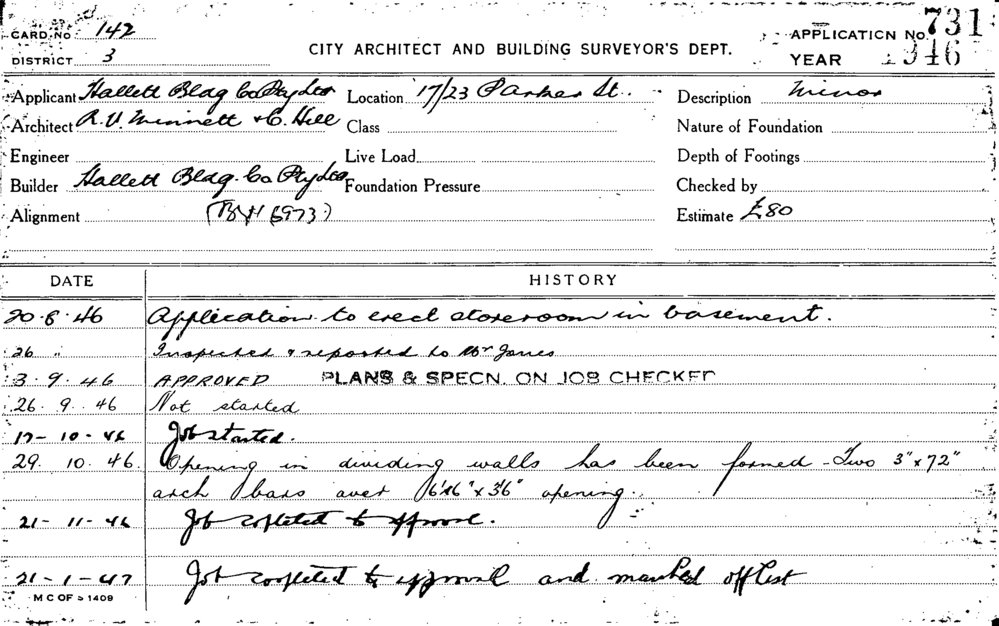 CARD No 142
DISTRICT 3
CITY ARCHITECT AND BUILDING SURVEYOR'S DEPT.
APPLICATION No. 731
YEAR 1946
Applicant Hallett Bldg Co Pty Ltd Location 17/23 Parker St. Description Minor
Architect R. V. Minnett & C. Hill Class Nature of Foundation
Engineer Live Load Depth of Footings
Builder Hallett Bldg. Co Pty Ltd Foundation Pressure Checked by
Alignment Estimate £80
DATE HISTORY
20.8.46 Application to erect storeroom in basement.
26 " Inspected & reported to Mr Jones
3.9.46 APPROVED PLANS & SPECN. ON JOB CHECKED
26.9.46 Not started
17-10-46 Job started.
29.10.46 Opening in dividing walls has been formed - Two 3" x 72"
arch bars over 6'6" x 3'6" opening.
21-11-46 Job copleted to approval.
21-1-47 Job copleted to approval and marked off list
M C OF S 1409